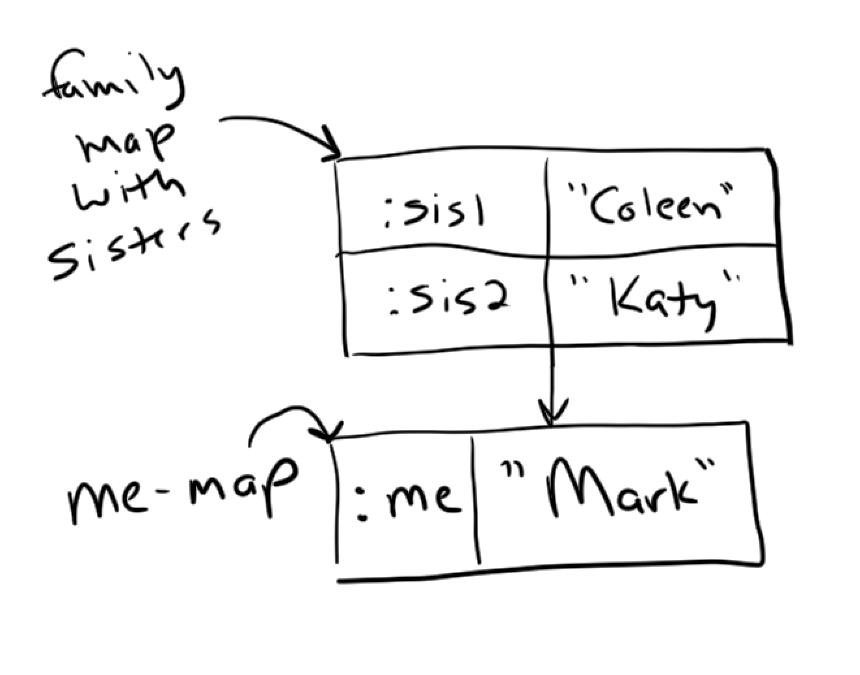 family
map
with
sisters
:sis1 "Coleen"
:sis2 "Katy"
me-map
:me "Mark"